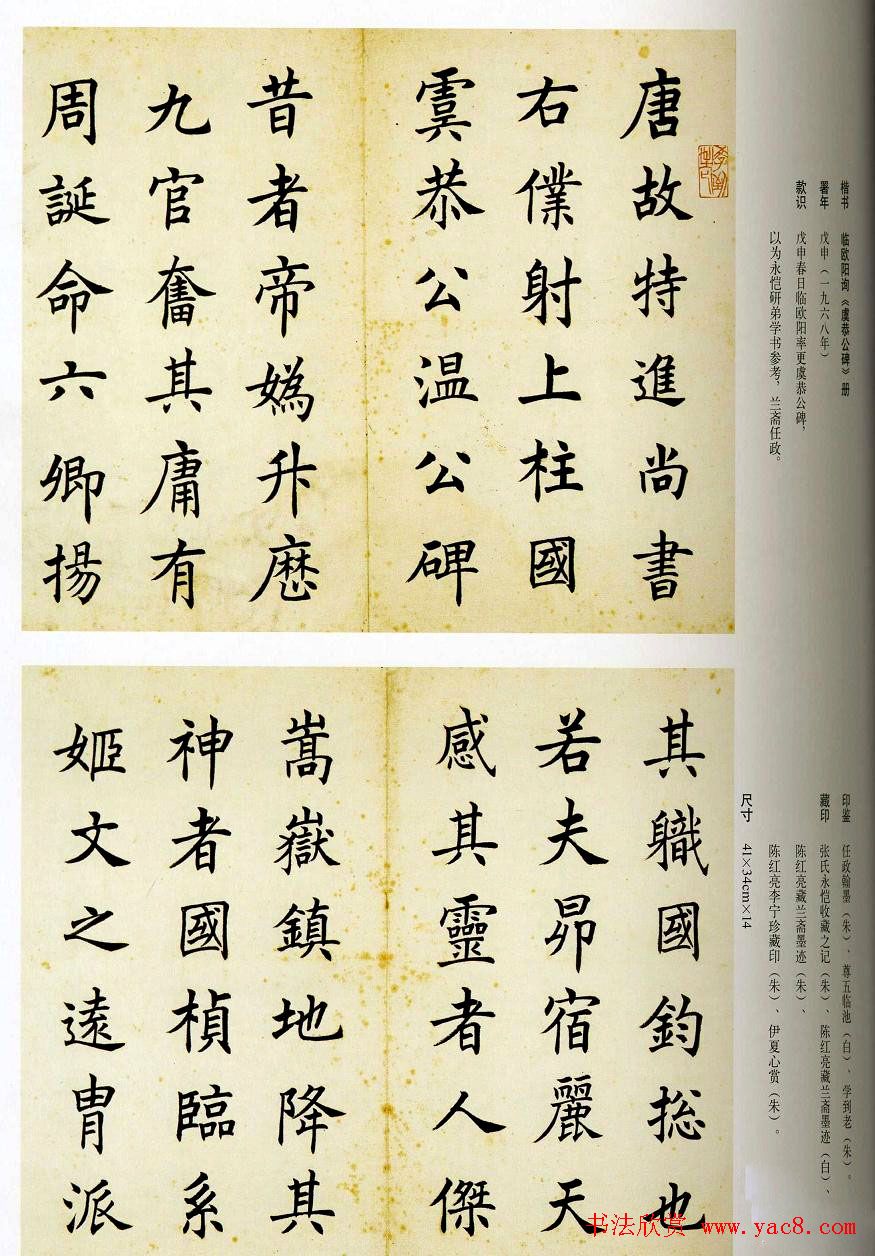 唐故特進尚書
右僕射上柱國
虞恭公温公碑
昔者帝媯升歷
九官奮其庸有
周誕命六卿揚
其職國鈞揔也
若夫昴宿麗天
感其靈者人傑
嵩嶽鎮地降其
神者國楨臨系
姬文之遠胄派
楷书 临欧阳询《虞恭公碑》册
署年 戊申（一九六八年）
款识 戊申春日临欧阳率更虞恭公碑，
以为永恺研弟学书参考，兰斋任政。
印鉴 任政翰墨（朱）、尊五临池（白）、学到老（朱）。
藏印 张氏永恺收藏之记（朱）、陈红亮藏兰斋墨迹（白）、
陈红亮藏兰斋墨迹（朱）、
陈红亮李宁珍藏印（朱）、伊夏心赏（朱）。
尺寸 41×34cm×14
书法欣赏 www.yac8.com